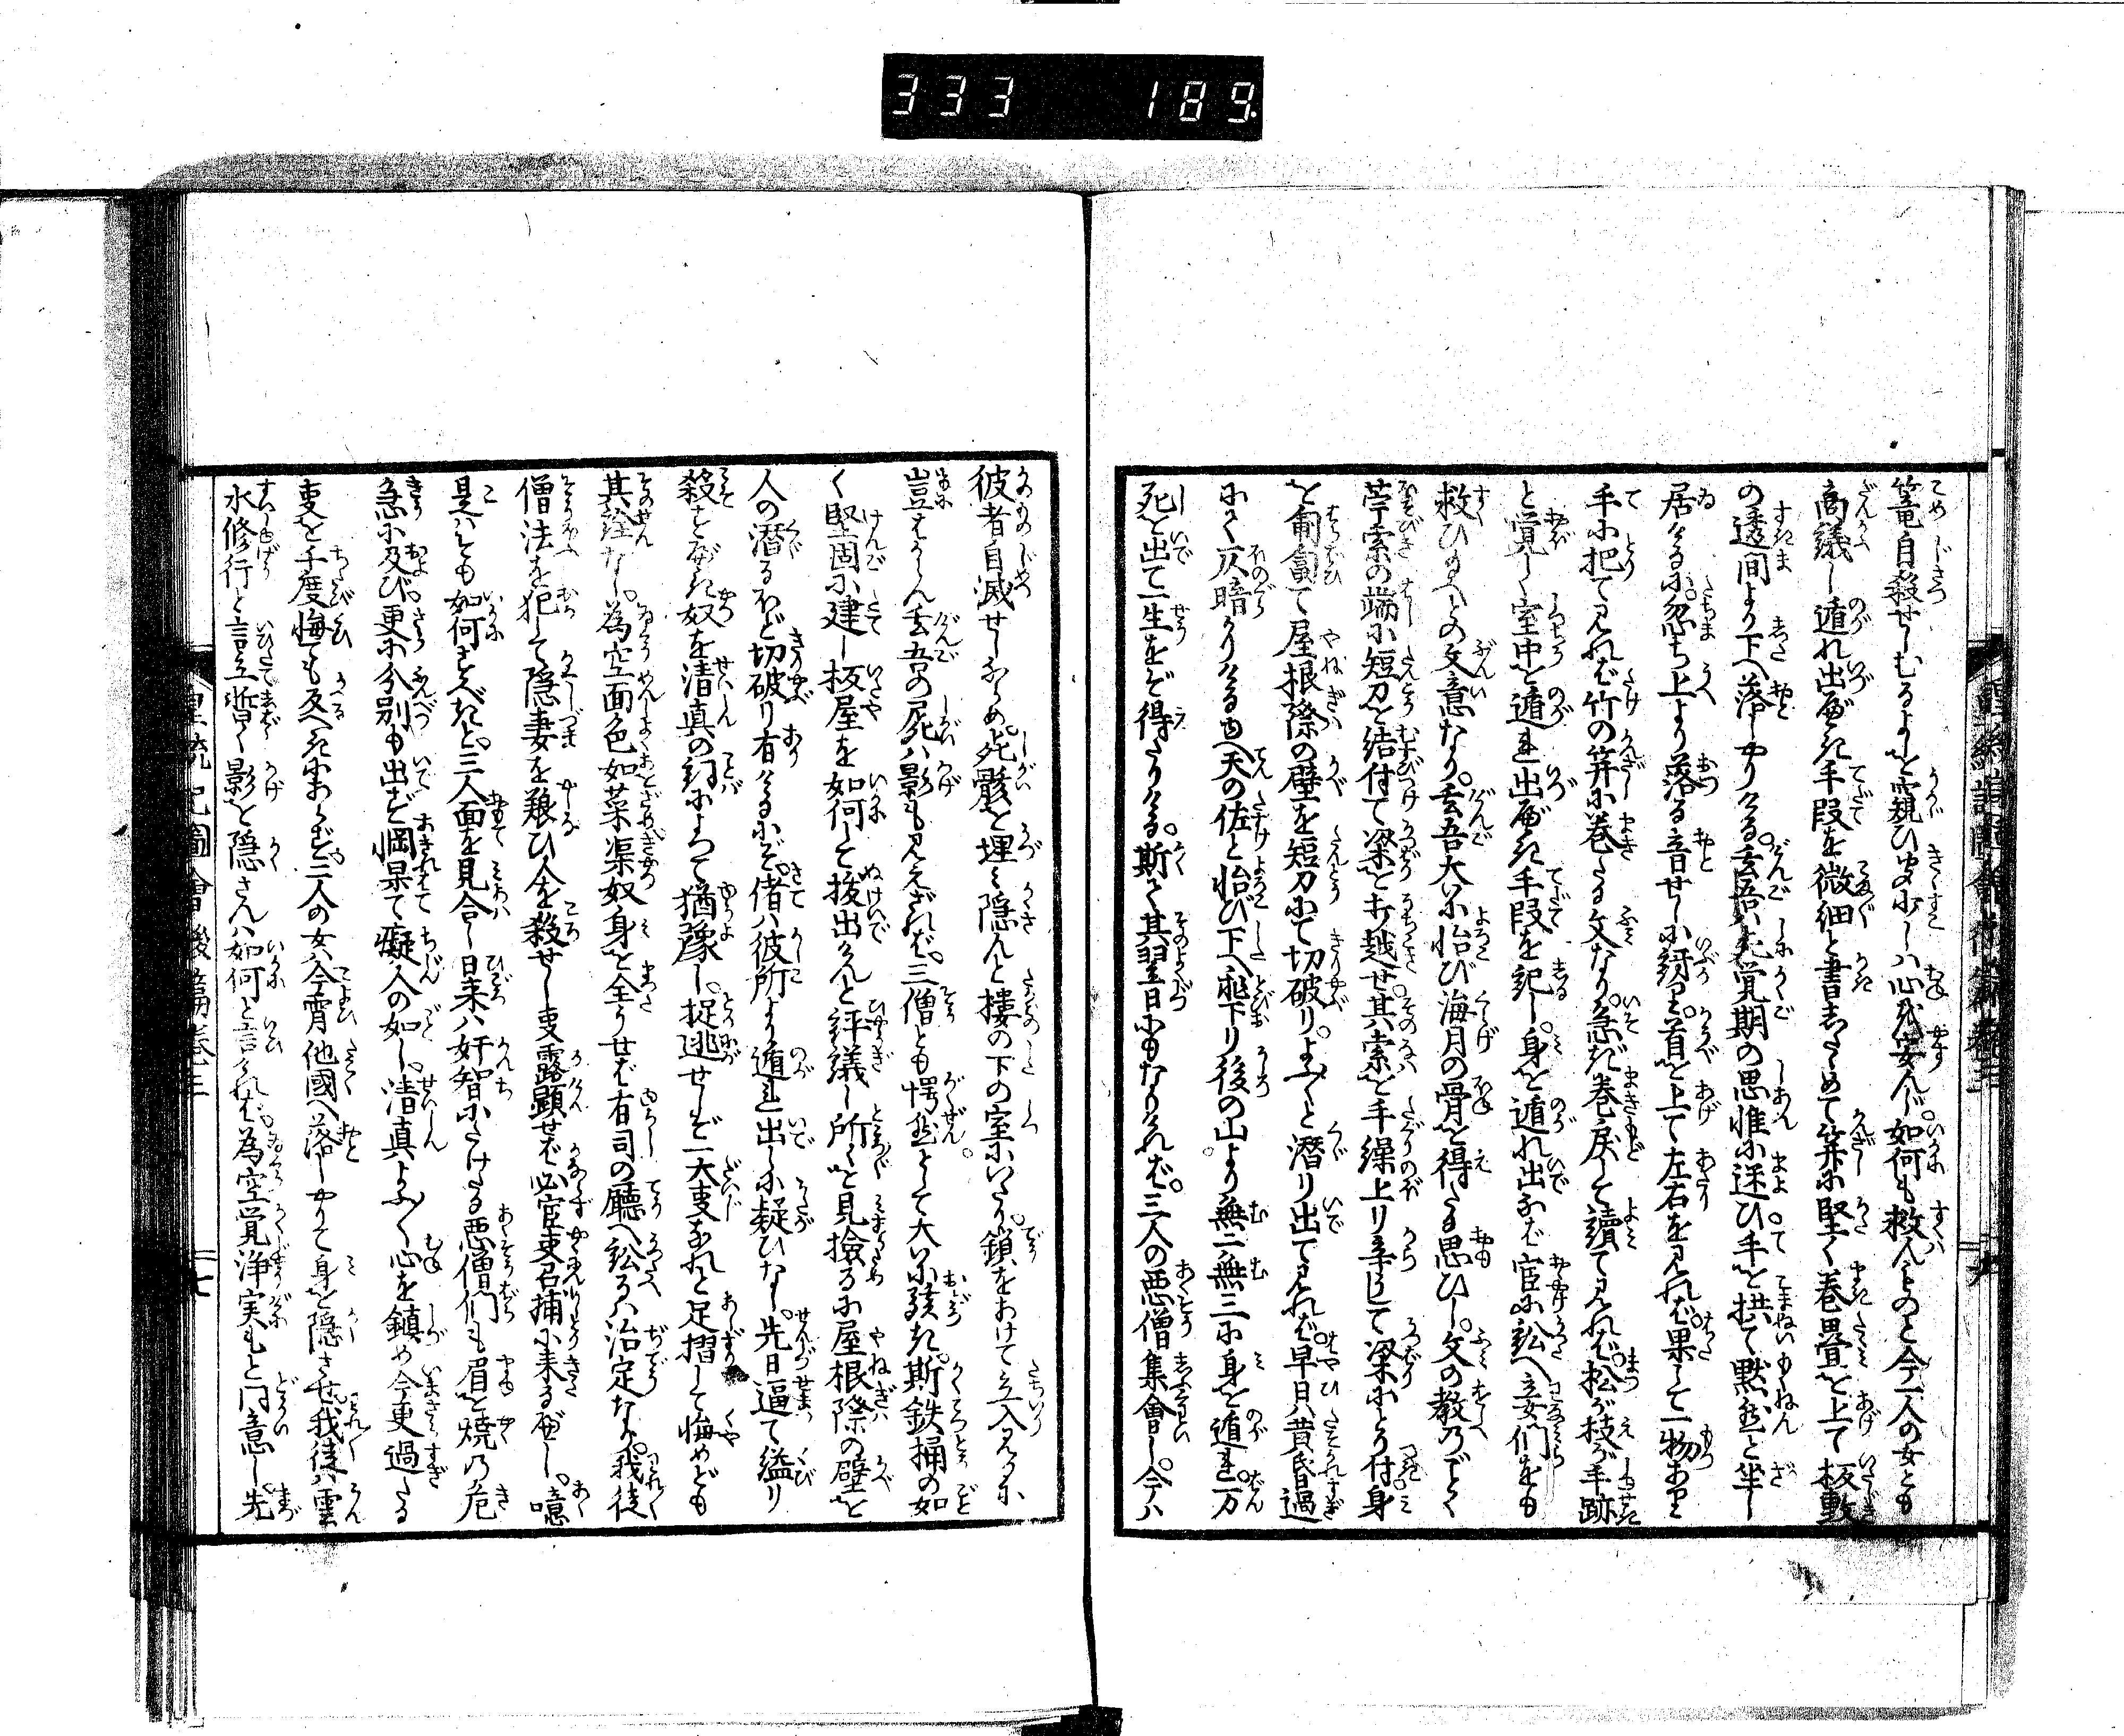 333 189
篭自殺せしむるよしを窺ひ聞すましハ心も安んじ如何も救んものと今一人の女とも
商議し遁れ出べき手段を微細と書したゝめて笄に堅く巻畳を上て板敷
の透間より下へ落しやりける雲吾ハ先覚期の思惟に迷ひ手を拱て黙然と坐し
居けるに忽ち上より落る音せしに紛と首を上て左右を見れば果して一物あり
手に把て見れば竹の笄に巻たる文なり急ぎ巻戻して讀て見れば松が枝が手跡
と覚しく室中を遁れ出べき手段を記し身を遁れ出なば官に訟へ妾們をも
救ひ給への文意なり雲吾大に怡び海月の骨を得たる思ひし文の教のごとく
苧索の端に短刀を結付て梁を打越せ其索を手繰上り辛じて梁にとり付身
を匍匐て屋根際の壁を短刀にて切破りよふ〳〵と潜り出て見れば早日黄昏過
にて仄暗かりけるゆへ天の佐と怡び下へ飛下り後の山より無二無三に身を遁れ万
死を出て一生をぞ得たりける斯て其翌日にもなりければ三人の悪僧集會し今ハ
彼者自滅せしならめ死骸を埋み隠んと樓の下の室にいたり鎖をあけて立入見るに
豈はからん雲吾の屍ハ影も見えざれば三僧とも愕然として大に駭き斯鉄桶の如
く堅固に建し板屋を如何して抜出けんと評議し所々を見撿るに屋根際の壁を
人の潜るほど切破り有けるにぞ偖ハ彼所より遁れ出しに疑ひなし先日逼て縊り
殺すべき奴を清真の詞によつて猶豫し捉逃せしぞ一大事なれと足摺して悔めども
其詮なし為空面色如菜渠奴身を全うせば有司の廳へ訟るハ治定なり我徒
僧法を犯して隠妻を艱ひ人を殺せし事露顕せば必官吏召捕に来るべし噫
是ハとも如何すべきと三人面を見合し日来ハ奸智にたけたる悪僧們も眉を焼の危
急に及び更に分別も出ず惘果て癡人の如し清真よふ〳〵心を鎮め今更過たる
事を千度悔ても返へきにあらず二人の女ハ今宵他國へ落しやりて身を隠させ我徒ハ雲
水修行と言立暫く影を隠さんハ如何と言ければ為空覚浄実もと同意し先
皇統記圖會後篇巻三